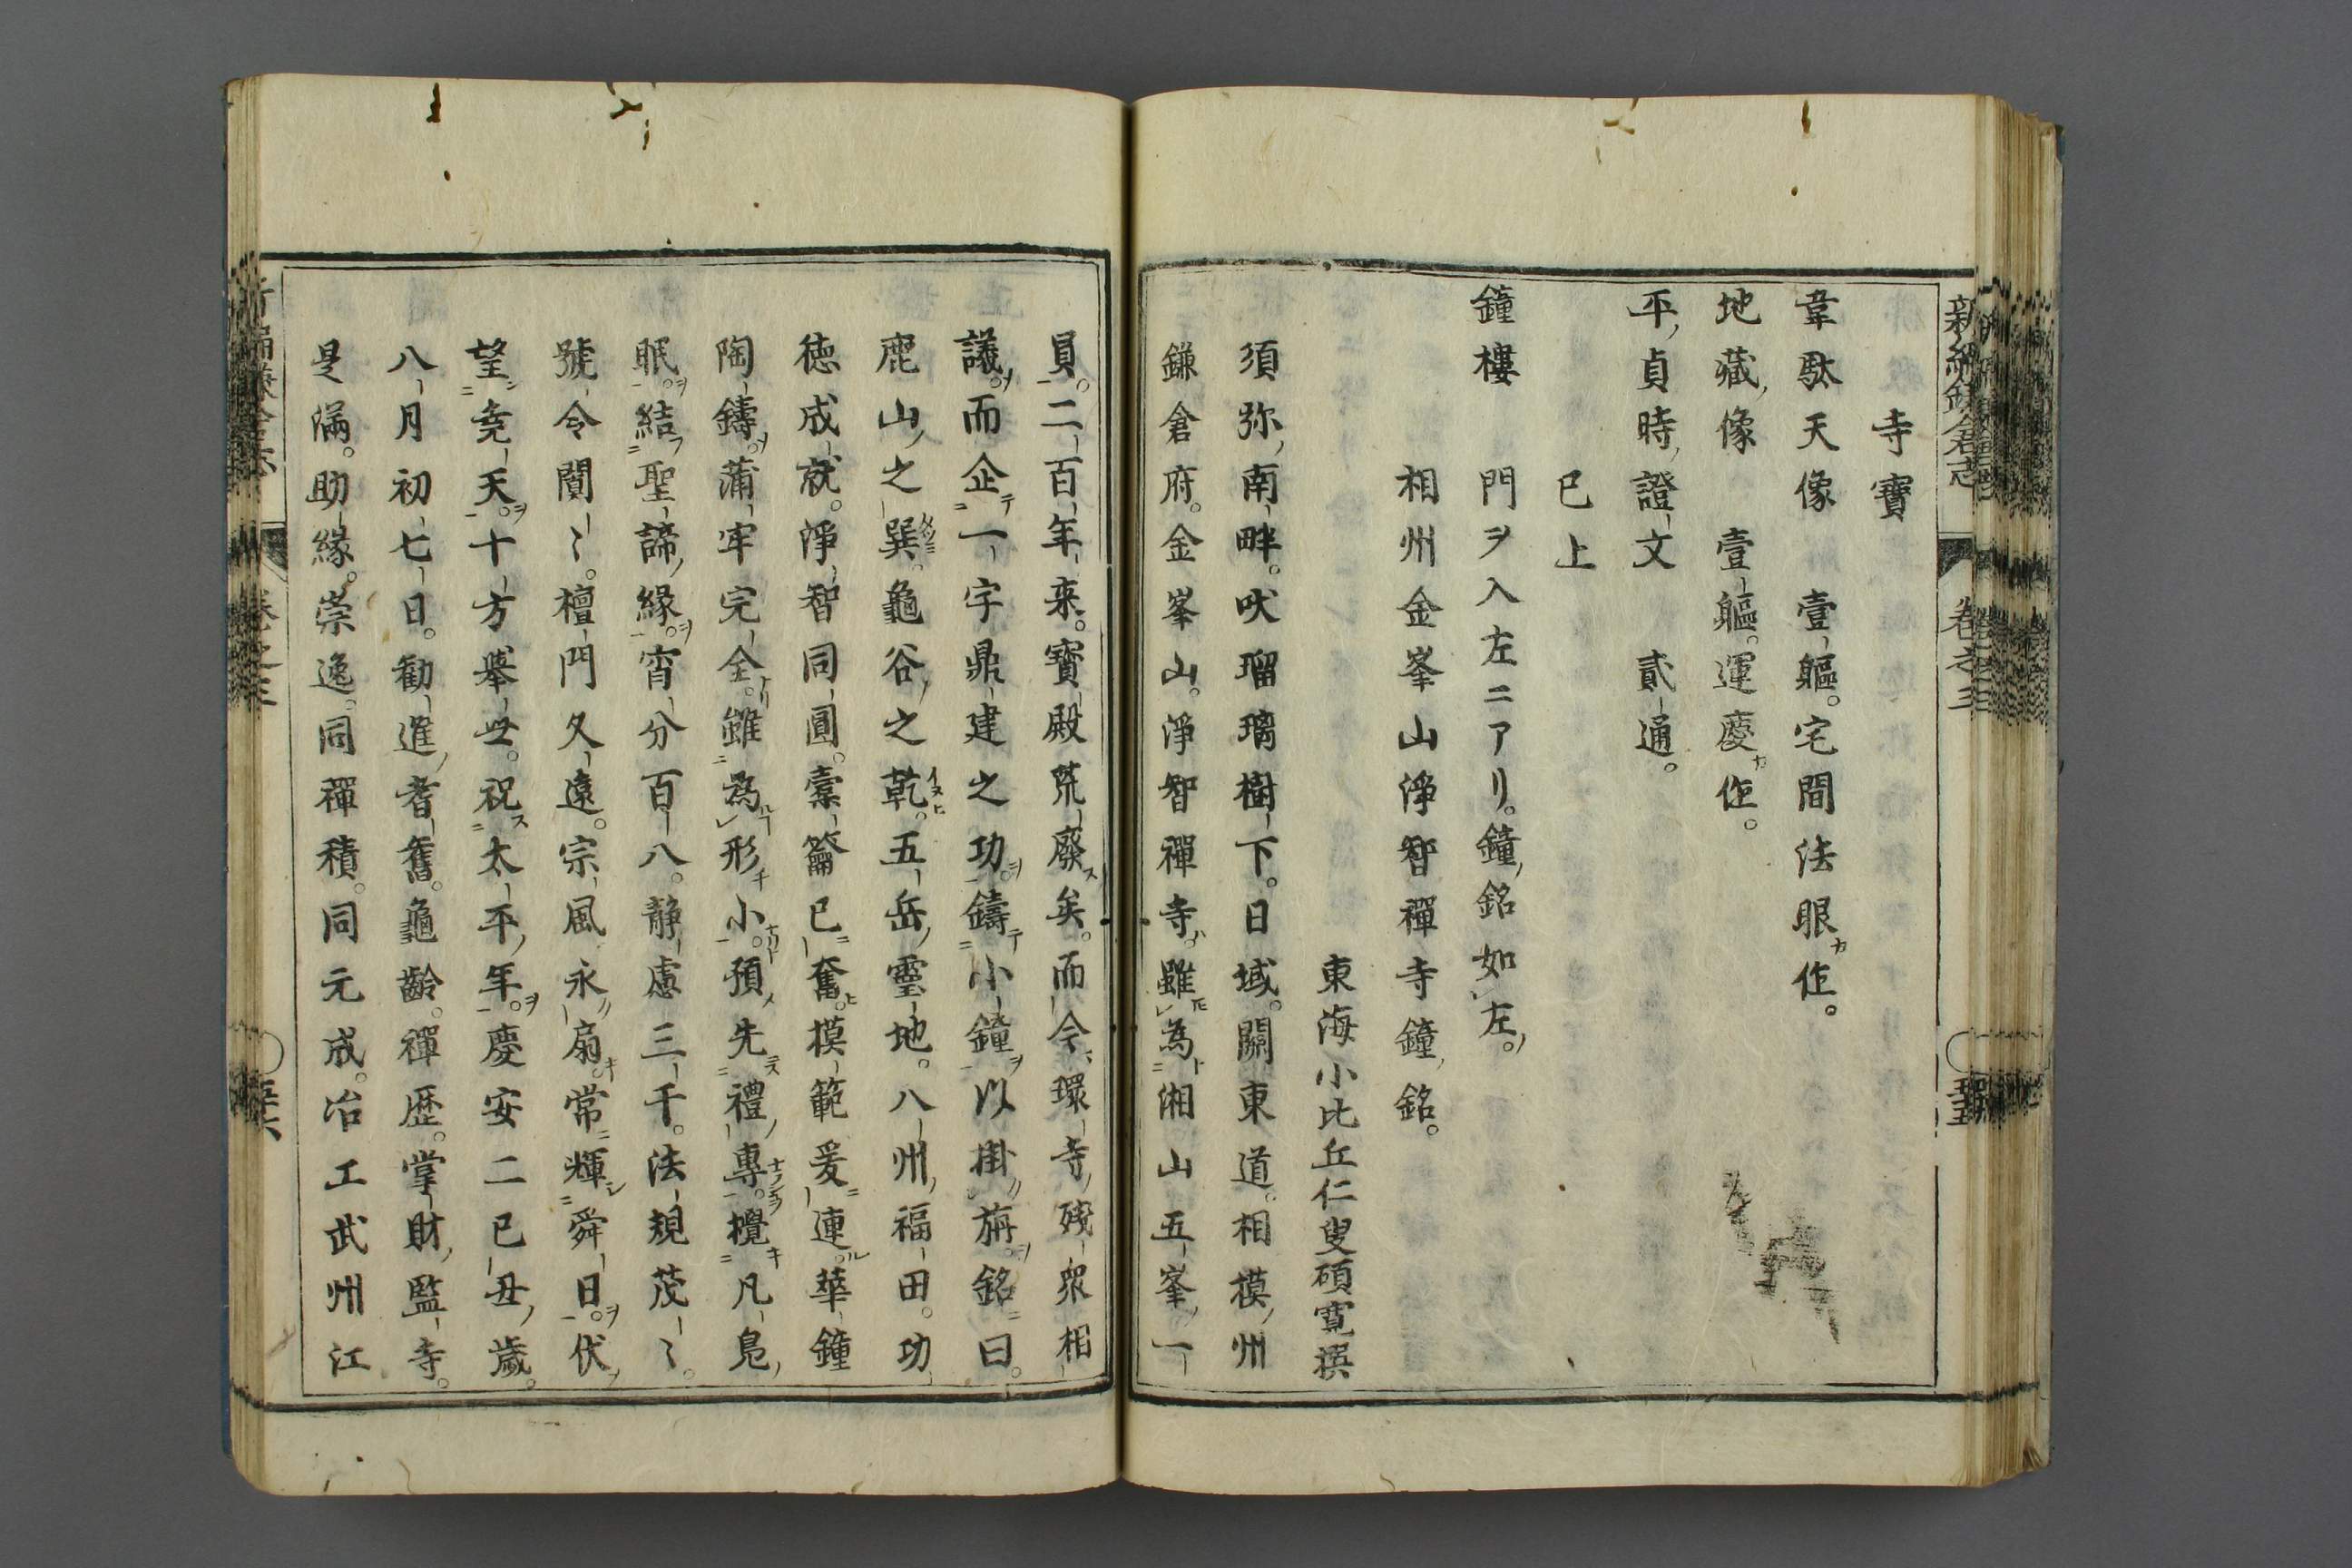 新編鎌倉志　卷之三
寺寶
韋駄天像　壹軀。宅間法眼カ作。
地藏ノ像　壹軀。運慶カ作。
平ノ貞時ノ證文　貳通。
已上
鐘樓　門ヲ入左ニアリ。鐘ノ銘如左ノ。
相州金峯山淨智禪寺鐘ノ銘。
東海小比丘仁叟碩寬撰
須弥ノ南畔。吠瑠璃樹下。日域。關東道。相模ノ州
鎌倉府。金峯山。淨智禪寺ハ。雖為湘山五峯ノ一
員。二百年来。寶殿荒廢ス矣。而今環寺ノ殘衆相
議。而企一宇鼎建之功。鑄小鐘以掛旃。銘曰。
鹿山ノ之巽。龜谷ノ之乾。五岳ノ靈地。八州ノ福田。功
徳成就。淨智同圓。橐籥已奮。摸範爰連。華鐘
陶鑄。蒲牢完全。雖為形小。預先禮ノ專。欖凡鳧ノ
眠。結聖諦ノ緣。宵分百八。靜慮三千。法規茂〻。
號令闐〻。檀門久遠。宗風永扇。常輝舜日。伏
望堯天。十方擧世。祝太平ノ年。慶安二己丑ノ歲。
八月初七日。勸進ノ耆舊。龜齡。禪歴。掌財ノ監寺。
是滿。助緣。崇逸。同禪積。同元成。冶工武州江
新編鎌倉志　卷之三